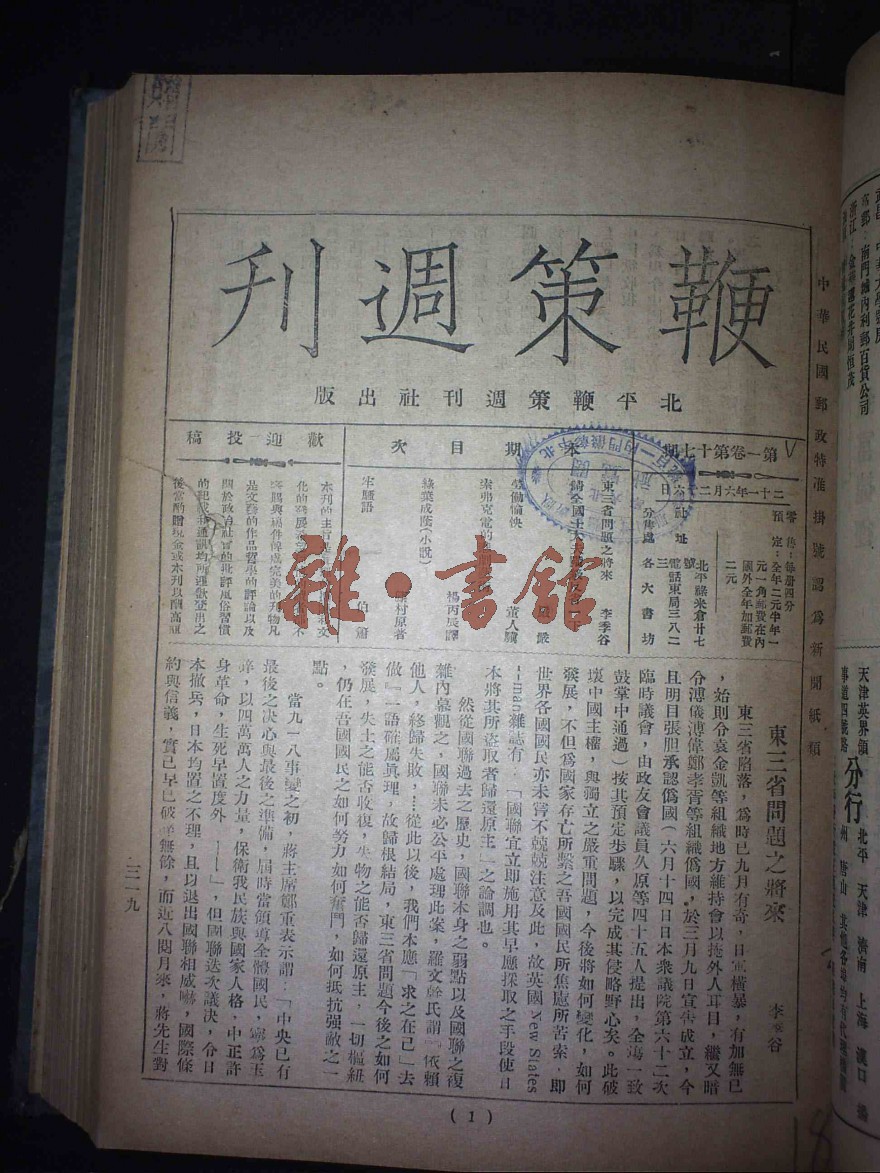 鞭策週刊
北平鞭策週刊社出版
中華民國郵政特准掛號認為新聞紙類
第一卷第十七期
二十一年六月二十六日
零售：每册四分
預定：全年二元半年一
元一角郵費在內
國外全年加郵費
二元
社址
北平祿米倉廿七
號
電話東局三八二
三
分售處
各大書坊
本期目次
東三省問題之將來 李季谷
勞働愉快 董人驥
綠葉成蔭(小說) 楊丙辰譯
牢騷語 伯蕭
歡迎投稿
關於政治社會的批評風俗習慣
後當酌贈現金或本刊以酬高誼
雜·書館
東三省問題之將來
李季谷
東三省陷落，爲時已九月有奇，日軍橫暴，有加無已
，始則分袁金凱等組織地方維持會以掩外人耳目，繼又暗
分溥儀溥偉鄭孝胥等組織僞國，於三月九日宣告成立，今
且明目張胆承認僞國（六月十四日日本衆議院第六十二次
臨時議會，由政友會議員久原等四十五人提出，全塲一致
鼓掌中通過）按其預定步驟，以完成其侵略野心矣。此破
壞中國主權，與獨立之嚴重問題，今後將如何變化，如何
發展，不但爲國家存亡所繫之吾國國民所焦慮所苦索，即
世界各國國民亦未嘗不兢兢注意及此，故英國New States
-man雜誌有：「國聯宜立即施用其早應採取之手段使日
本將其所盜取者歸還原主」之論調也。
然從國聯過去之歷史，國聯本身之弱點以及國聯之復
雜內幕觀之，國聯未必公平處理此案，羅文榦氏謂『依賴
他人，終歸失敗，……從此以後，我們本應『求之在己』去
做』一語確屬眞理，故歸根結局，東三省問題今後之如何
發展，失土之能否收復，失物之能否歸還原主，一切樞紐
，仍在吾國國民之如何努力如何奮鬥，如何抵抗强敵之一
點。
當九一八事變之初，蔣主席鄭重表示謂：「中央已有
最後之决心與最後之準備，屆時當領導全體國民，寧爲玉
碎，以四萬萬人之力量，保衛我民族與國家人格，中正許
身革命，生死早置度外——」，但國聯迭次議决，令日
本撤兵，日本均置之不理，且以退出國聯相威嚇，國際條
約與信義，實已早已破碎無餘，而近八閱月來，蔣先生對
三一九
(1)
天津英界領
事道四號路
分行
北平 天津 濟南 上海 漢口
唐山 其他各埠均有代理